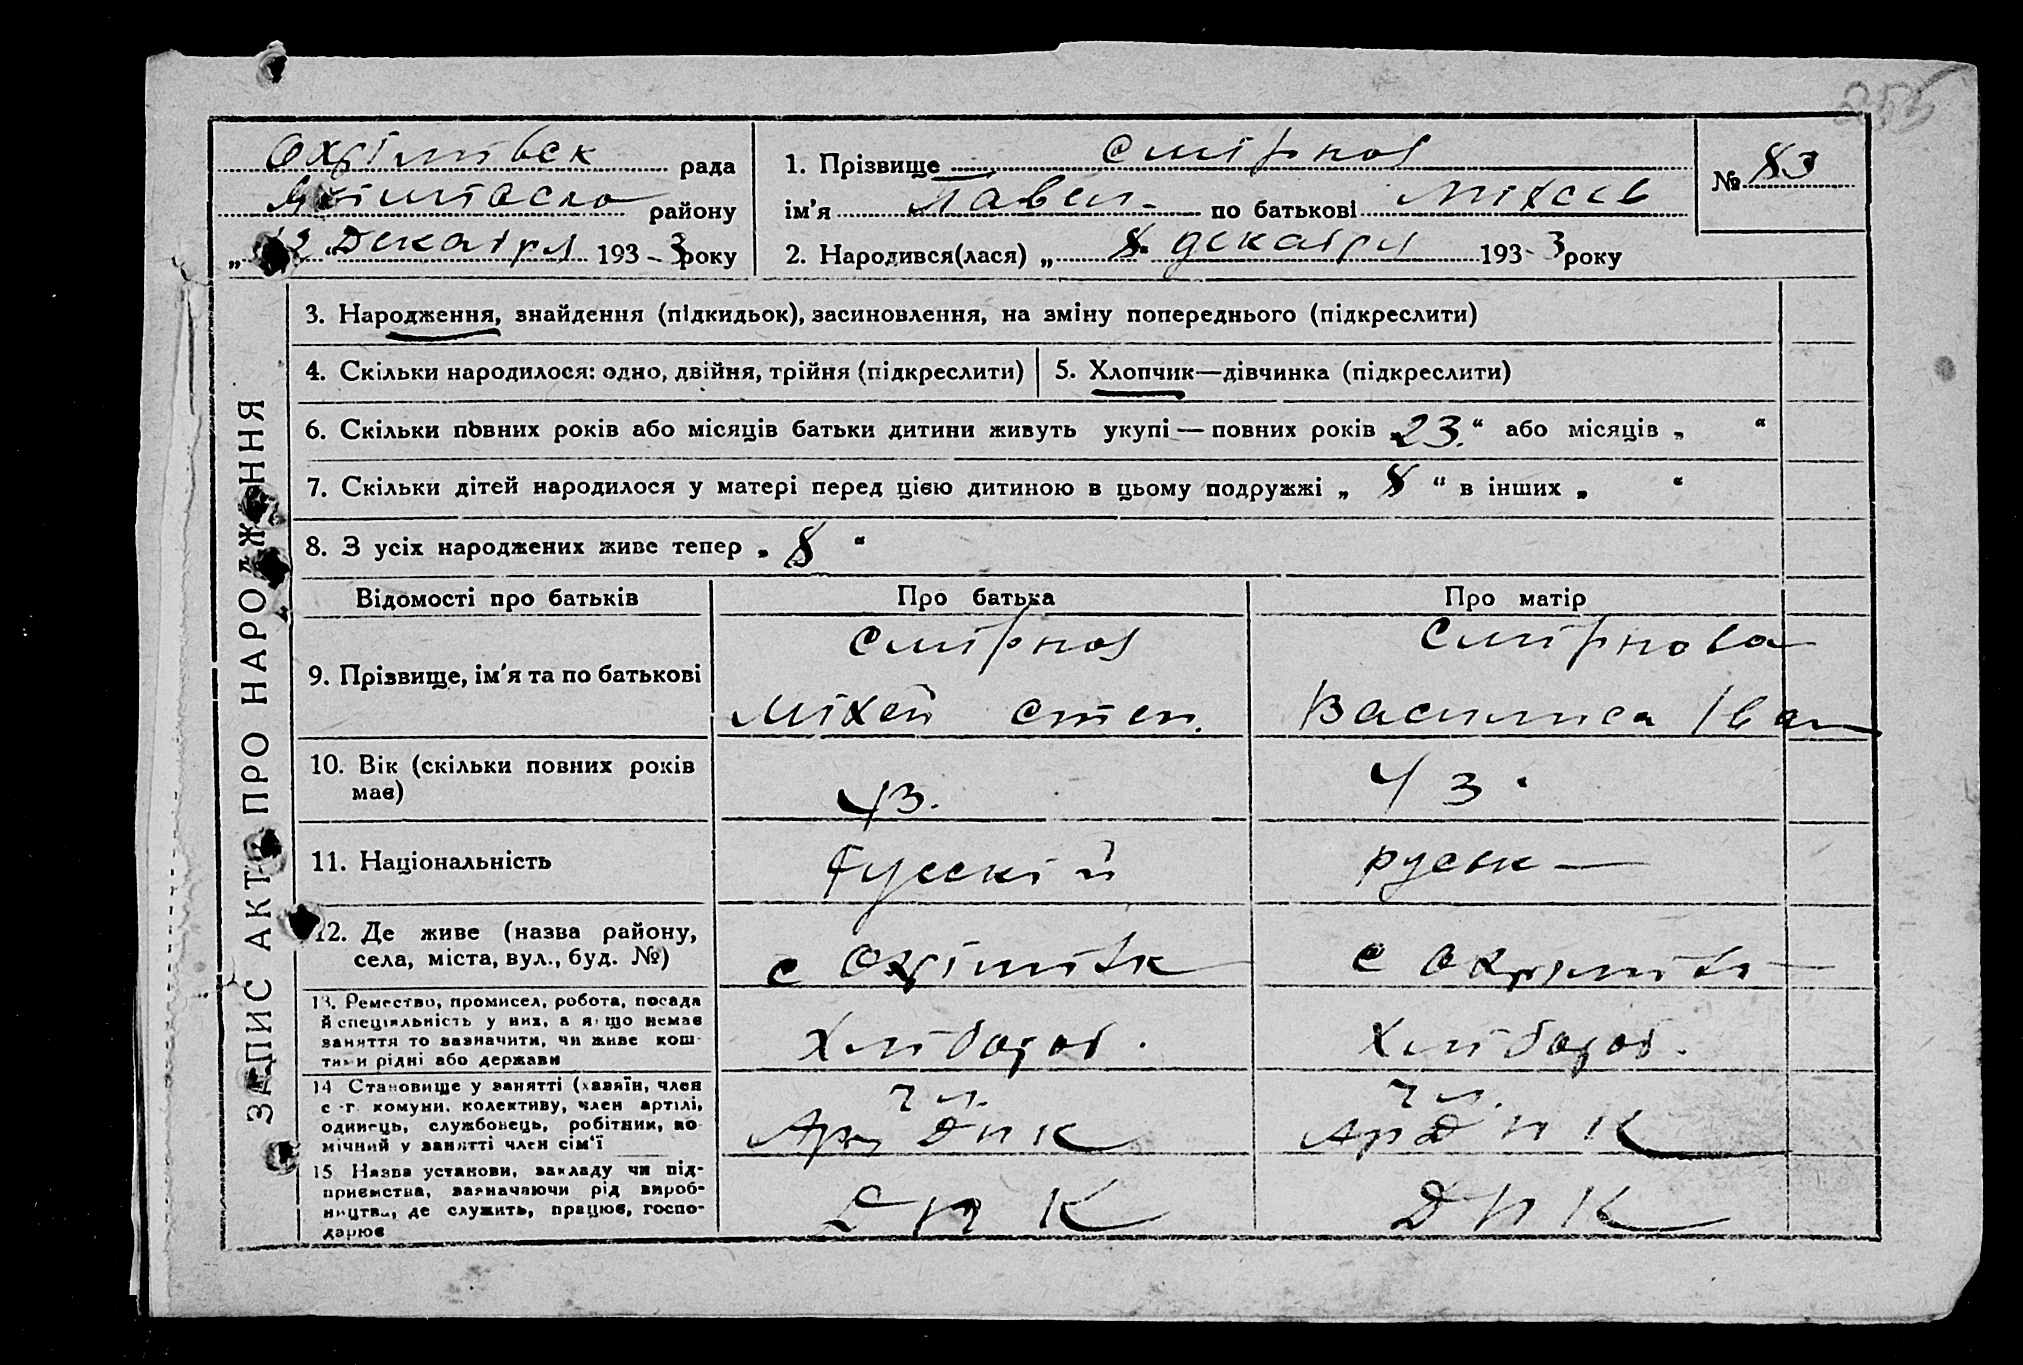 256
Охрімівск рада
району
12 " Декабря 193-3року
1. Прізвище Смірнов
ім'я Павел. по батькові Міхеев
2. Народився(лася) „ 8 " декабря 193-3року
№ 83
ЗАПИС АКТ ПРО НАРОДЖЕННЯ
3. Народження, знайдення (підкидьок), засиновлення, на зміну попереднього (підкреслити)
4. Скільки народилося: одно, двійня, трійня (підкреслити)
5. Хлопчик—дівчинка (підкреслити)
6. Скільки повних років або місяців батьки дитини живуть укупі — повних років „23.“ або місяців „ “
7. Скільки дітей народилося у матері перед цією дитиною в цьому подружжі „ 8 “ в інших „ “
8. З усіх народжених живе тепер „ 8 “
Відомості про батьків Про батька Про матір
9. Прізвище, ім'я та по батькові
Смірнов
Міхей Степ.
Смірнова
Василиса Іван
10. Вік (скільки повних років
має)
43.
43.
11. Національність
Русскій
руськ—
12. Де живе (назва району,
села, міста, вул., буд. №)
с Охрімівк
с Охрімів
13. Ремество, промисел, робота, посада
й спеціяльність у них, а якщо немає
заняття то зазначити, чи живе кош-
тами рідні або держави
Хлібороб.
Хлібороб.
14 Становище у занятті (хазяїн, член
с.-г. комуни, колективу, член артілі,
одинець, службовець, робітник, по-
мічний у занятті член сім'ї
чл.
Арт ДПК
чл.
Ар ДПК
15. Назва установи, закладу чи під-
приємства, зазначаючи рід вироб-
ництва, де служить, працює, госпо-
дарює
ДПК
ДПК